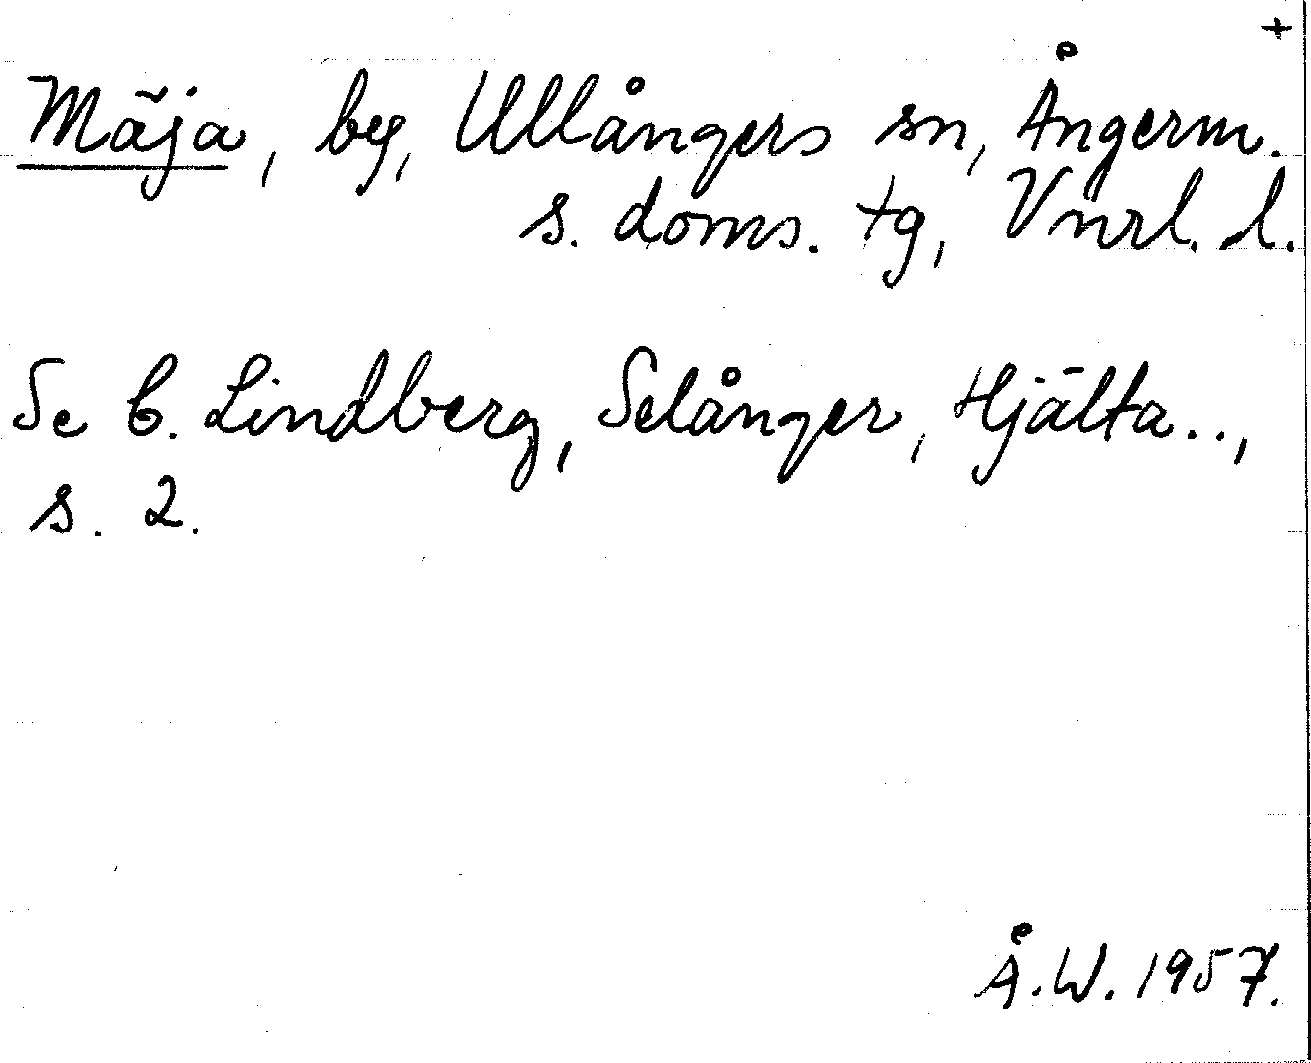 +
Mäja, by, Ullångers sn, Ångerm.
s. doms. tg, Vnrl. l.
Se C. Lindberg, Selånger, Hjälta..,
s. 2.
Å.W. 1957.